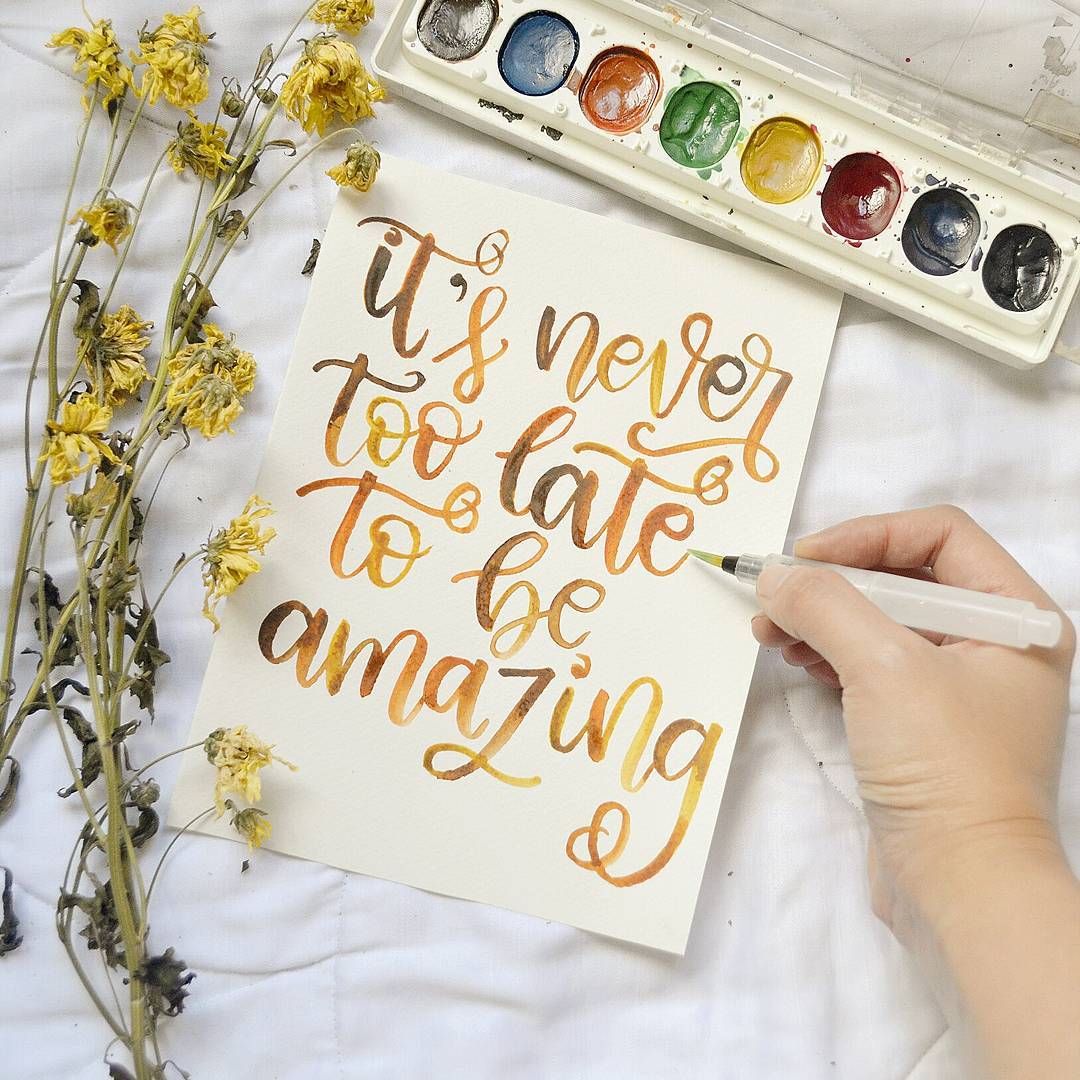 it's never
too late
to be
amazing